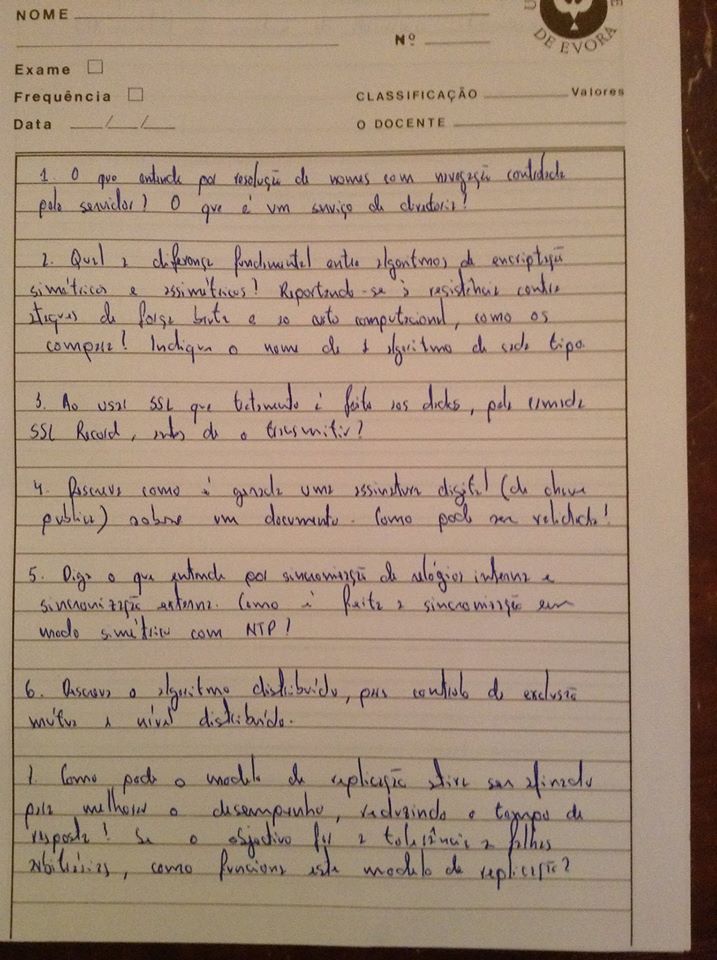 NOME
Nº
U E
DE EVORA
Exame
Frequência
CLASSIFICAÇÃO Valores
Data / /
O DOCENTE
1. O que entende por resolução de nomes com navegação controlada
pelo servidor? O que é um serviço de directoria?
2. Qual a diferença fundamental entre algoritmos de encriptação
simétricos e assimétricos? Reportando-se à resistência contra
ataques de força bruta e ao custo computacional, como os
compara? Indique o nome de 1 algoritmo de cada tipo.
3. Ao usar SSL que tratamento é feito aos dados, pela camada
SSL Record, antes de o transmitir?
4. Descreva como é gerada uma assinatura digital (de chave
pública) sobre um documento. Como pode ser validada?
5. Diga o que entende por sincronização de relógios interna e
sincronização externa. Como é feita a sincronização em
modo simétrico com NTP?
6. Descreva o algoritmo distribuído, para controlo de exclusão
mútua a nível distribuído.
7. Como pode o modelo de replicação ativa ser afinado
para melhorar o desempenho, reduzindo o tempo de
resposta? Se o objectivo for a tolerância a falhas
arbitrárias, como funciona este modelo de replicação?